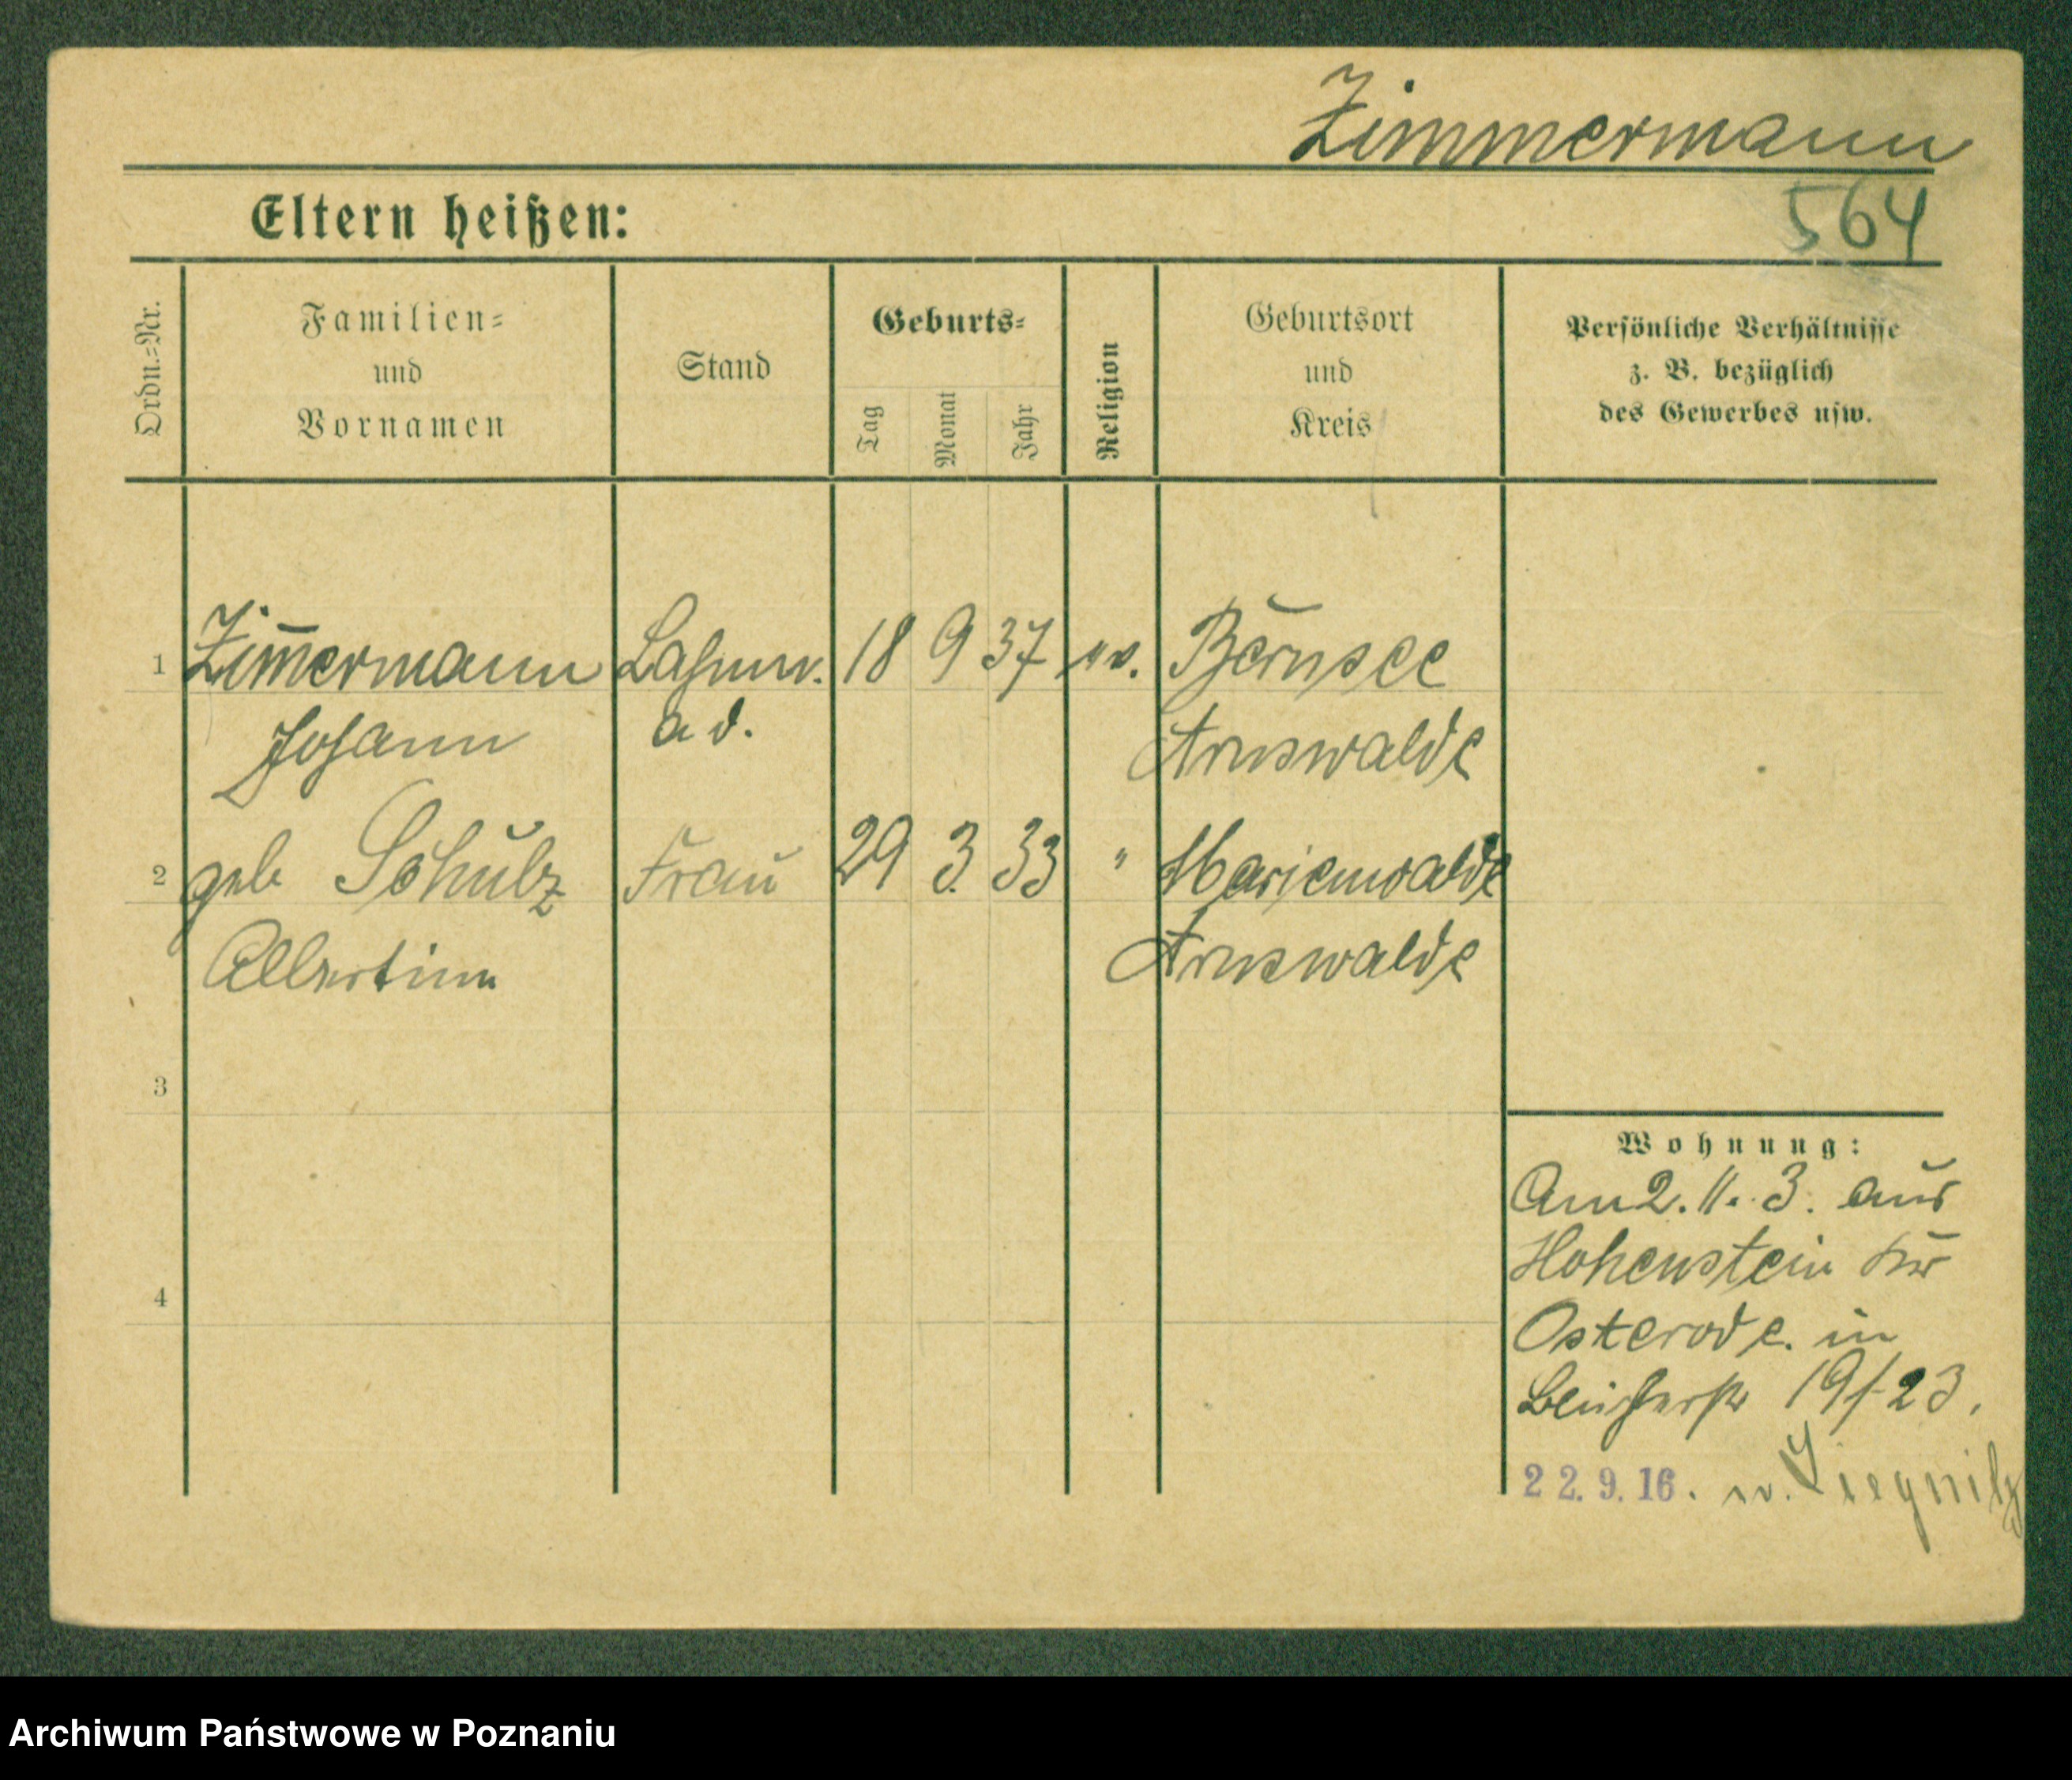 Zimmermann
564
Eltern heißen:
Ordn.=Nr.
Familien=
und
Vornamen
Stand
Geburts=
Tag
Monat
Jahr
Religion
Geburtsort
und
Kreis
Persönliche Verhältnisse
z. B. bezüglich
des Gewerbes usw.
1 Zim̄ermann 18 9 37 ev. Bernsee
Johann a. d. Arnswalde
2 geb Schulz Frau 29 3. 33 " Marienwalde
Albertine Arnswalde
3
4
Wohnung:
Am 2. 11. 3. aus
Hohenstein Kr
Osterode. in
19/23.
22.9.16. n. Liegnitz
Archiwum Państwowe w Poznaniu